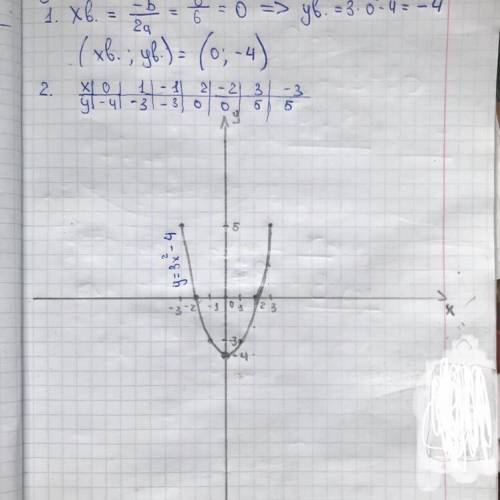 1. xв. = -b/2a = 0/6 = 0 => yв. = 3·0-4 = -4
(xв.; yв.) = (0; -4)
2. x | 0 | 1 | -1 | 2 | -2 | 3 | -3
y | -4 | -3 | -3 | 0 | 0 | 5 | 5
y
5
y=3x²-4
-3 -2 -1 0 1 2 3 x
-3
-4